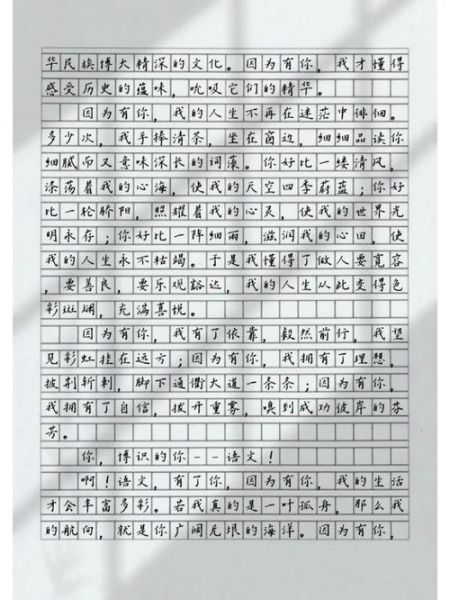 华民族博大精深的文化。因为有你，我才懂得
感受历史的蕴味，吮吸它们的精华。
因为有你，我的人生不再在迷茫中徘徊。
多少次，我手捧清茶，坐在窗边，细细品读你
细腻而又意味深长的词藻。你好比一缕清风，
涤荡着我的心海，使我的天空四季蔚蓝；你好
比一轮骄阳，照耀着我的心灵，使我的世界光
明永存；你好比一阵细雨，滋润我的心田，使
我的人生永不枯竭。于是我懂得了做人要宽容
，要善良，要乐观豁达，我的人生从此变得色
彩斑斓，充满喜悦。
因为有你，我有了依靠，毅然前行，我望
见彩虹挂在远方；因为有你，我拥有了理想，
披荆斩刺，脚下通衢大道一条条；因为有你，
我拥有了自信，拨开重雾，嗅到成功彼岸的芬
芳。
你，博识的你--语文！
啊！语文，有了你，因为有你，我的生活
才会丰富多彩。若我真的是一叶孤舟，那么我
的航向，就是你广阔无垠的海洋。因为有你，